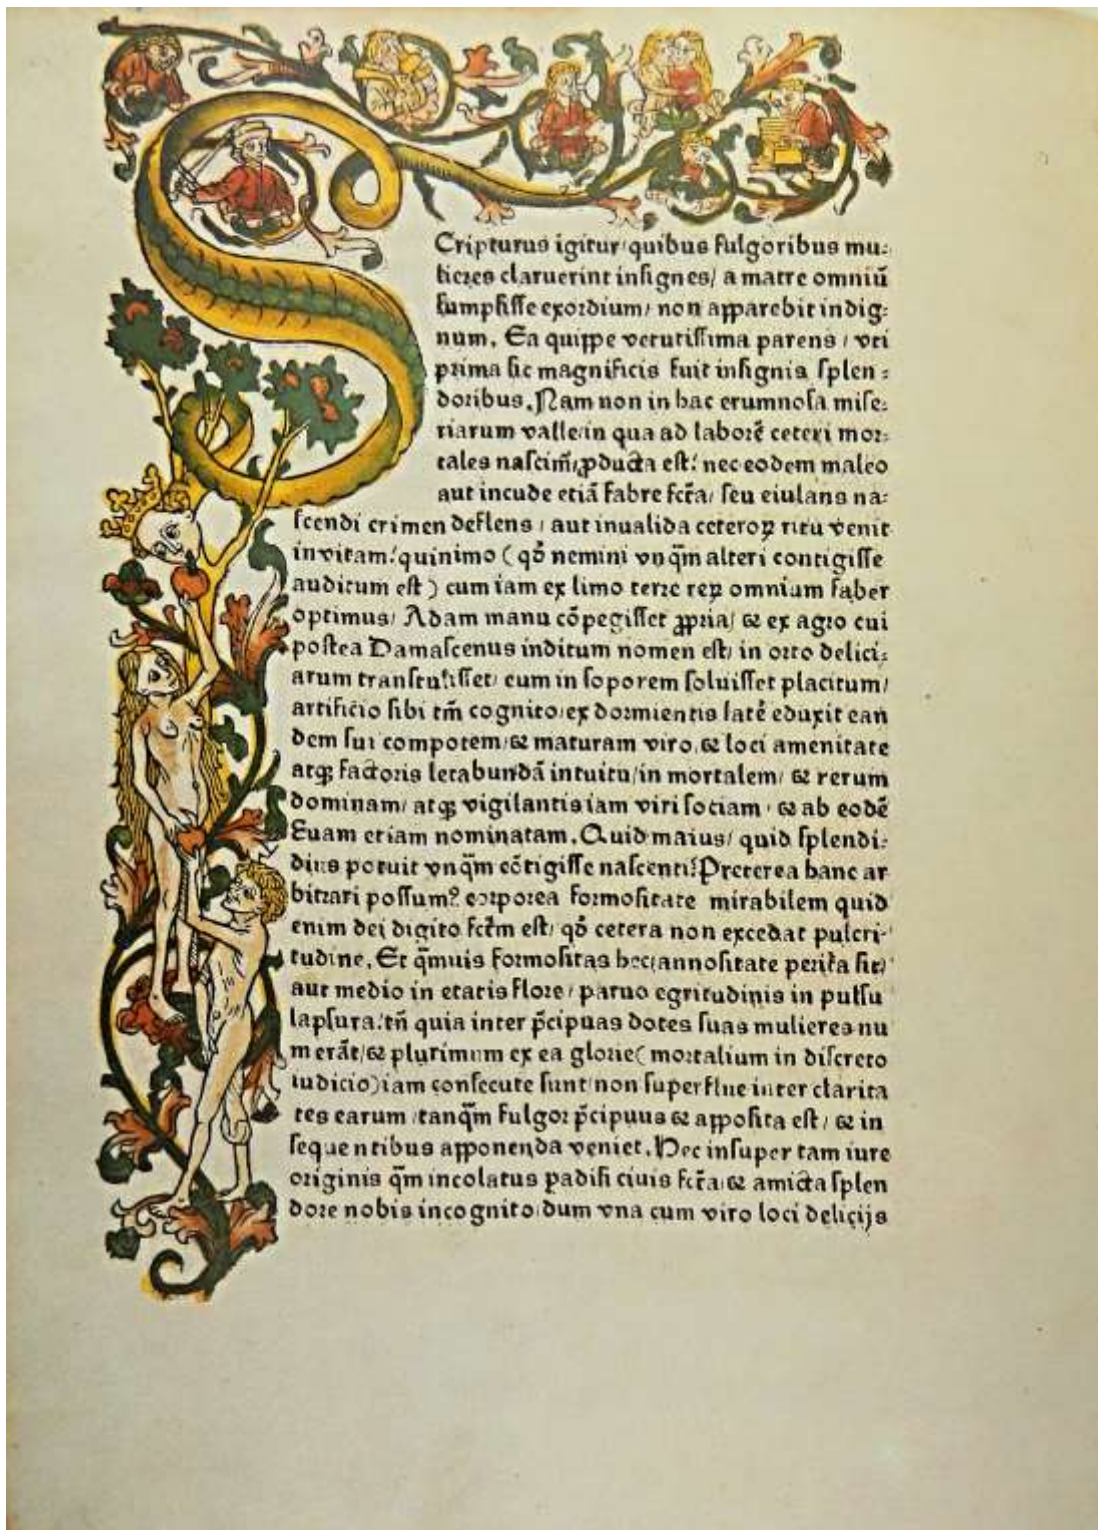 Scripturus igitur/quibus fulgoribus mu⸗
lieres claruerint insignes/ a matre omniū
sumpsisse exordium/ non apparebit indig⸗
num. Ea quippe vetutissima parens / vti
prima sic magnificis fuit insignis splen⸗
doribus. Nam non in hac erumnosa mise⸗
riarum valle in qua ad laborē ceteri mor⸗
tales nascim̄/ ꝓducta est: nec eodem maleo
aut incude etiā fabre fcṫa/ seu eiulans na⸗
scendi crimen deflens / aut inualida ceteroꝝ ritu venit
in vitam: quinimo ( qđ nemini vnqm̄ alteri contigisse
auditum est ) cum iam ex limo terre reꝝ omnium faber
optimus/ Adam manu cōpegisset ꝓpria/ ⁊ ex agro cui
postea Damascenus inditum nomen est/ in orto delici⸗
arum transtulisset/ cum in soporem soluisset placitum/
artificio sibi tm̄ cognito/ ex dormientis latē eduxit ean
dem sui compotem/ ⁊ maturam viro/ ⁊ loci amenitate
atqꝫ factoris letabundā intuitu/ in mortalem/ ⁊ rerum
dominam/ atqꝫ vigilantis iam viri sociam / ⁊ ab eodē
Euam etiam nominatam. Quid maius/ quid splendi⸗
dius potuit vnqm̄ cōtigisse nascenti? Preterea hanc ar
bitrari possum? corporea formositate mirabilem quid
enim dei digito fctm̄ est/ qđ cetera non excedat pulcri⸗
tudine. Et qm̄uis formositas hec/ annositate peritā sit/
aut medio in etatis flore/ paruo egritudinis in pulsu
lapsura: tn̄ quia inter p̄cipuas dotes suas mulieres nu
merāt/ ⁊ plurimum ex ea glorie( mortalium in discreto
iudicio)iam consecute sunt/ non superflue inter clarita
tes earum /tanqm̄ fulgor p̄cipuus ⁊ apposita est/ ⁊ in
sequentibus apponenda veniet. Hec insuper tam iure
originis qm̄ incolatus padisi ciuis fcṫa/ ⁊ amicta splen
dore nobis incognito/ dum vna cum viro loci delicijs